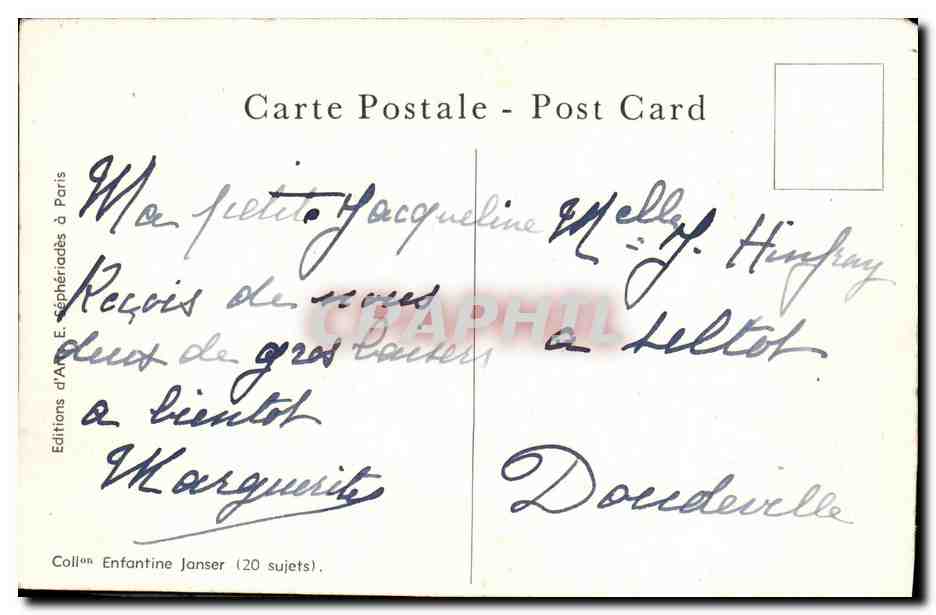 Carte Postale - Post Card
Ma petite Jacqueline
Reçois de nous
deux de gros baisers
a bientot
Marguerite
Melle J. Hinfray
a seltot
Doudeville
Editions d'Art E. Séphériadès à Paris
Collon Enfantine Janser (20 sujets).
CRAPHIL